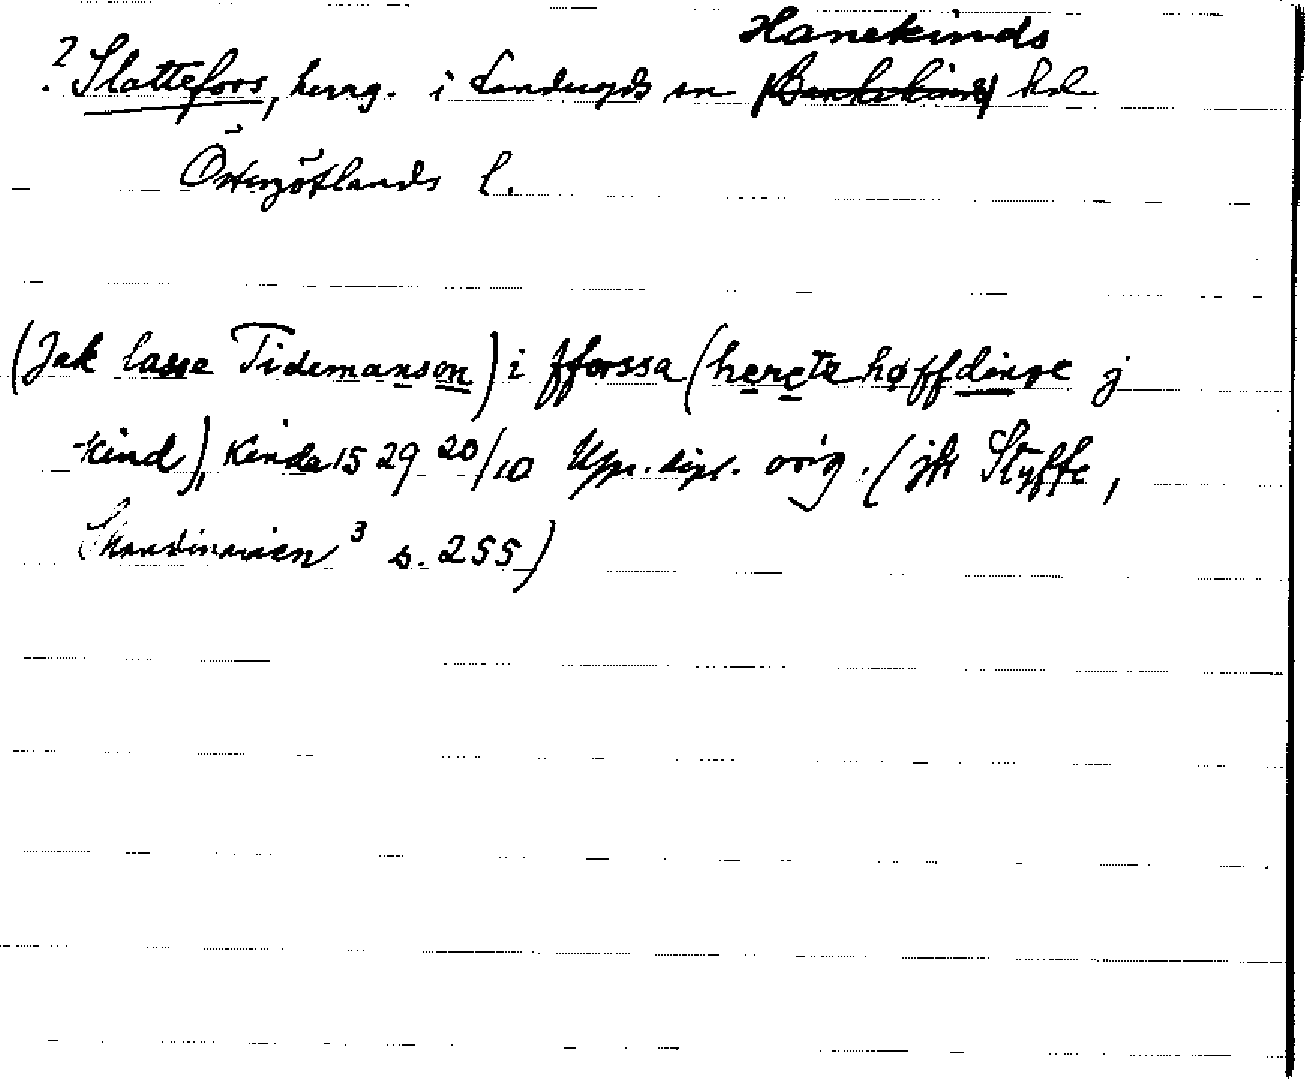 Hanekinds
? Slattefors, herrg. i Landeryds sn Bankekinds hd
Östergötlands l.
(Jak lasse Tidemanson) i fforssa (herete høffdinge j
kind), Kinda 1529 20/10 Upps. dipl. orig. (jfr Styffe,
Skandinavien³ s. 255)